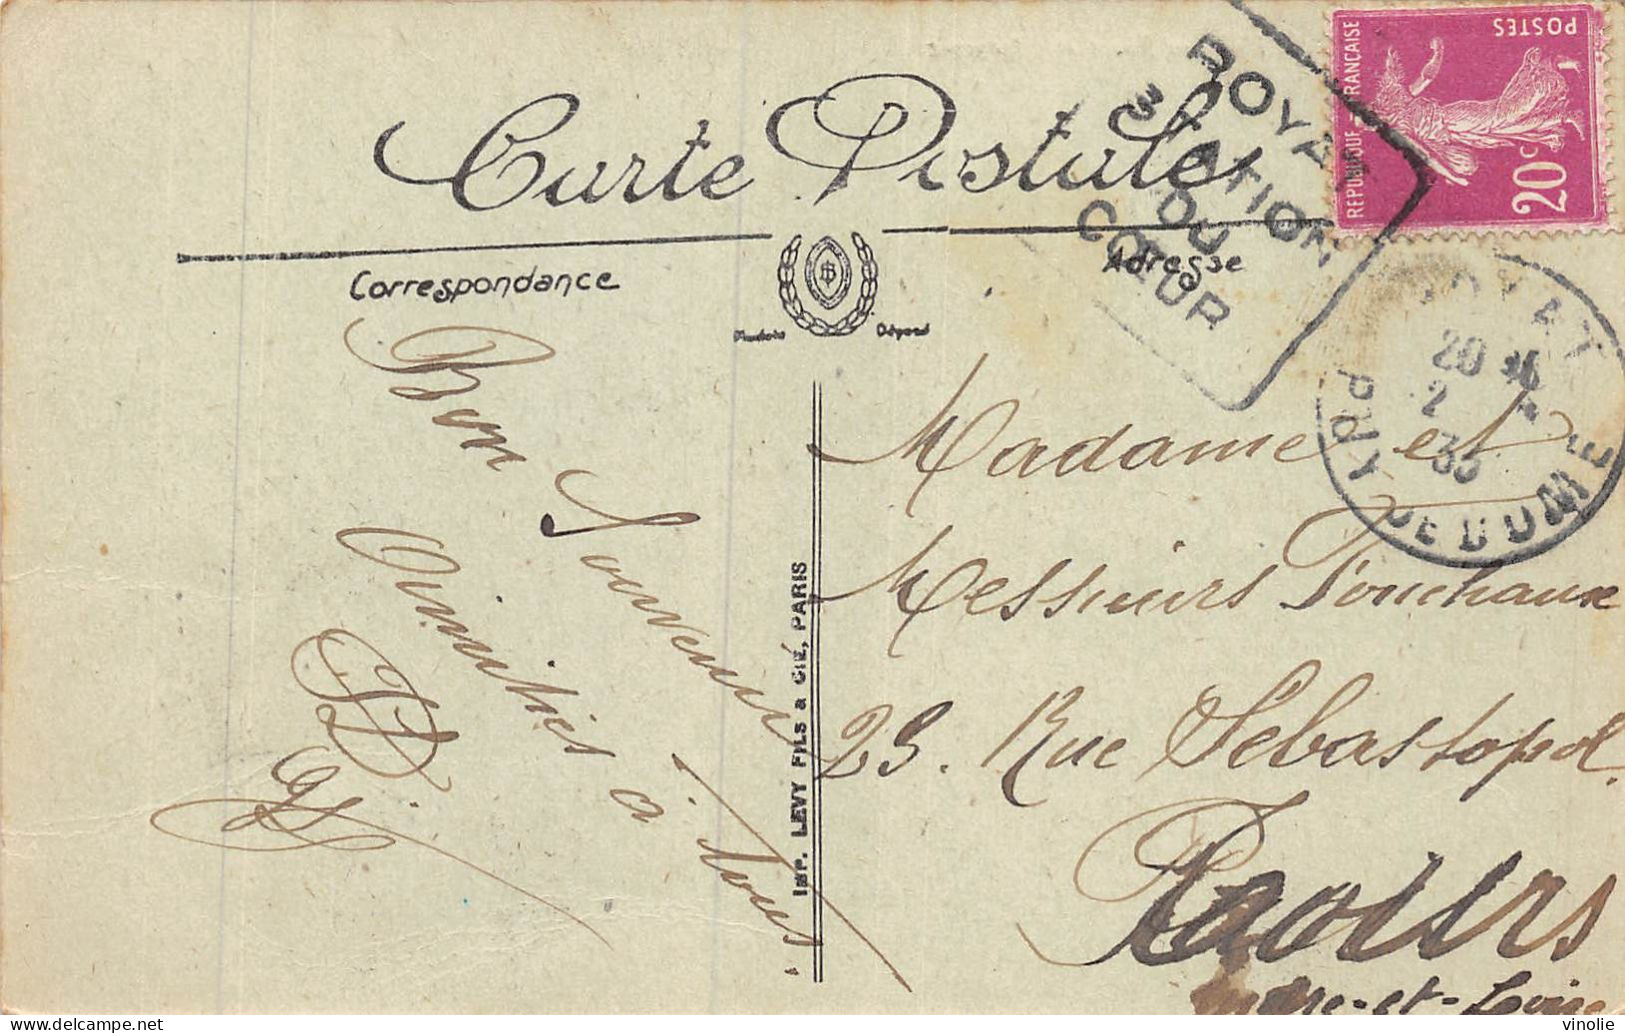 Carte Postale
ROYAT
STATION
DU
CŒUR
REPUBLIQUE FRANÇAISE
POSTES
20c
Correspondance
Adresse
Modèle
Déposé
ROYAT
20
2
35
PUY DE DOME
Bon Souvenir
Amitiés à tous
IMP. LEVY FILS & CIE, PARIS
Madame et
Messieurs Pouchaux
23. Rue Sébastopol.
Tours
Indre-et-Loire
vinolie